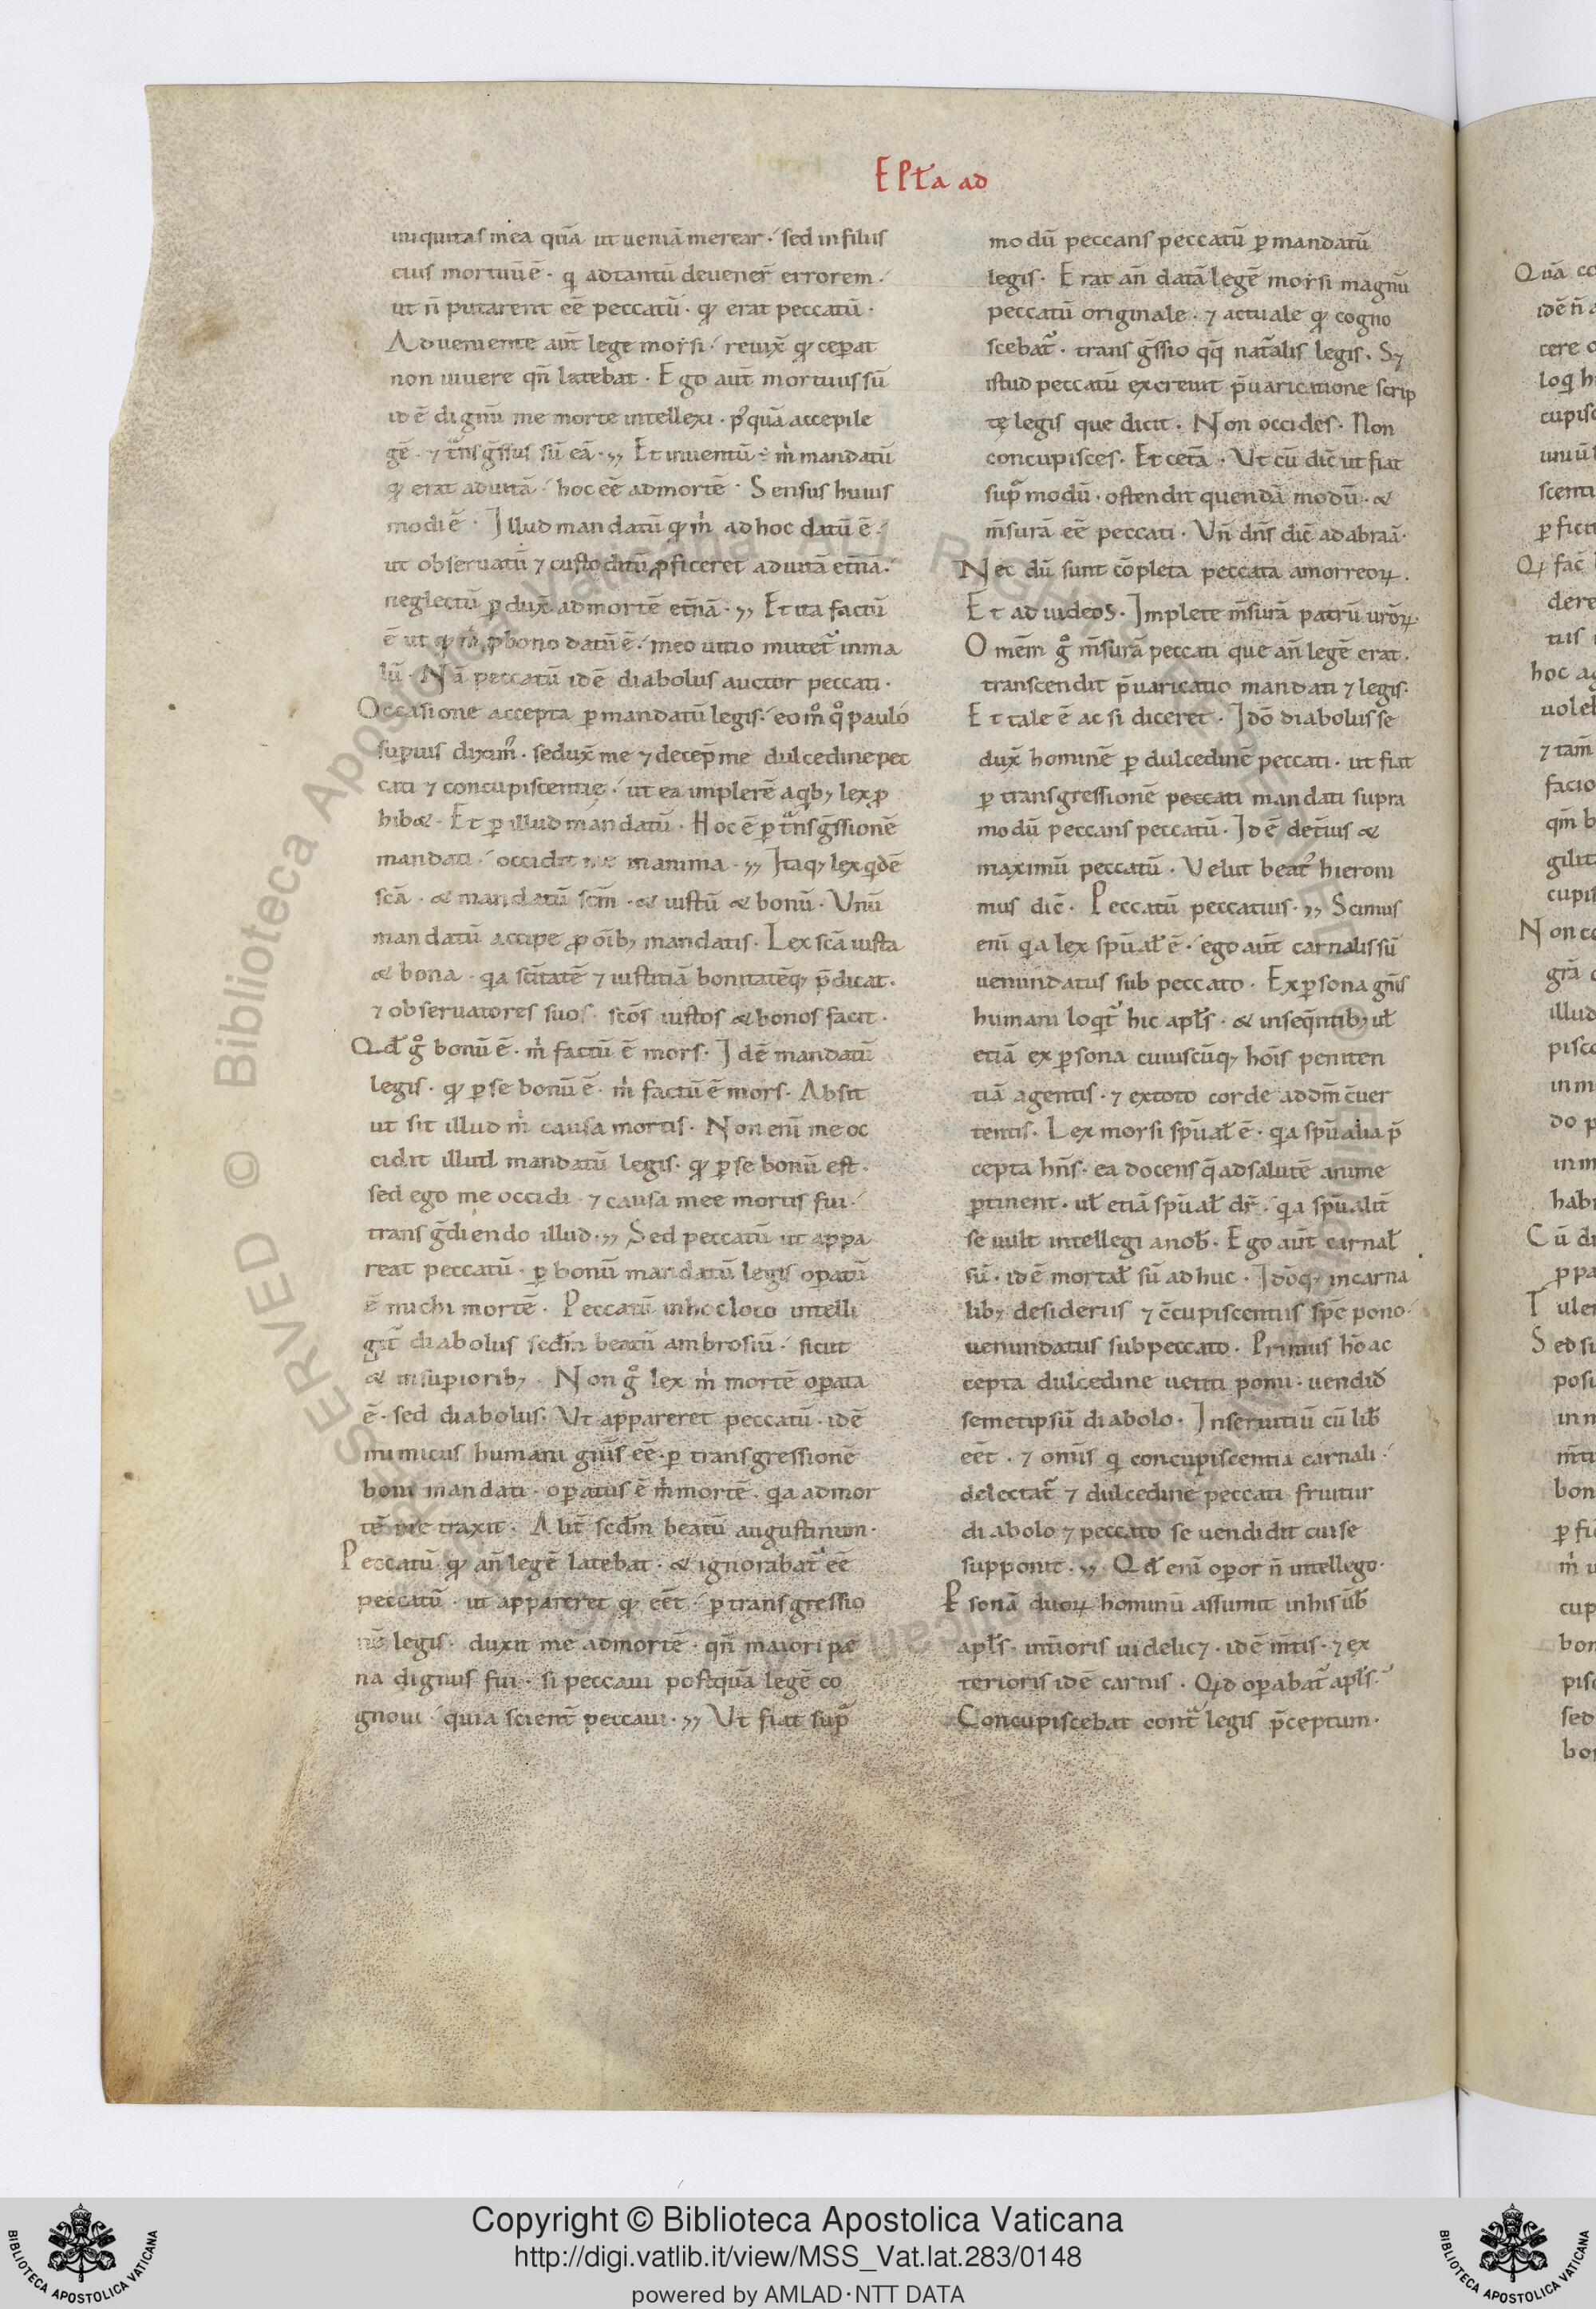 EPła ad
iniquitas mea quã ut ueniã merear. sed in filiis
eius mortuũ ẽ. q adtantũ deuener̃ errorem.
ut ñ putarent eẽ peccatũ. qđ erat peccatũ.
Adueniente aũt lege moẏsi. reuix̃ qđ ceperat
non uiuere qñ latebat. Ego aũt mortuus sũ
idẽ dignũ me morte intellexi. pꝰquã accepi le
gẽ. ⁊ tñsg̃ssus sũ eã. Et inuentũ ÷ m̓ mandatũ
qđ erat ad uitã. hoc eẽ admortẽ. Sensus huius
modi ẽ. Illud mandatũ qđ m̓ ad hoc datũ ẽ.
ut obseruatũ ⁊ custoditũ ꝓficeret ad uitã et̃nã.
neglectũ ꝑdux̃ admortẽ et̃nã. Et ita factũ
ẽ ut qđ m̓ ꝓ bono datũ ẽ. meo uitio mutet᷑ in ma
lũ. Nã peccatũ idẽ diabolus auctor peccati.
Occasione accepta ꝑ mandatũ legis. eo m̊ q̊ paulo
suꝑius diximꝰ. sedux̃ me ⁊ decep̃ me dulcedine pec
cati ⁊ concupiscentię. ut ea implerẽ a qbꝫ lex ꝓ
hibet. Et ꝑ illud mandatũ. Hoc ẽ ꝑ tñsg̃ssionẽ
mandati. occidit me in anima. Itaqꝫ lex qdẽ
scã. & mandatũ scm̃. & iustũ & bonũ. Unũ
mandatũ accipe ꝓ oĩbꝫ mandatis. Lex scã iusta
& bona. qa scĩtatẽ ⁊ iustitiã bonitatẽqꝫ p̃dicat.
⁊ obseruatores suos scõs iustos & bonos facit.
Qđ g̊ bonũ ẽ. m̓ factũ ẽ mors. Idẽ mandatũ
legis. qđ ꝑ se bonũ ẽ. m̓ factũ ẽ mors. Absit
ut sit illud m̓ causa mortis. Non enĩ me oc
cidit illud mandatũ legis. qđ ꝑ se bonũ est.
sed ego me occidi. ⁊ causa mee mortis fui.
transg̃diendo illud. Sed peccatũ ut appa
reat peccatũ. ꝑ bonũ mandatũ legis oꝑatũ
ẽ michi mortẽ. Peccatũ in hoc loco intelli
git᷑ diabolus scđm beatũ ambrosiũ. sicut
& insuꝑioribꝫ. Non g̊ lex m̓ mortẽ oꝑata
ẽ. sed diabolus. Ut appareret peccatũ. idẽ
inimicus humani gñis eẽ. ꝑ transgressionẽ
boni mandati. oꝑatus ẽ m̓ mortẽ. qa ad mor
tẽ me traxit. Alit᷑ scđm beatũ augustinum.
Peccatũ qđ añ legẽ latebat. & ignorabat᷑ eẽ
peccatũ. ut appareret qđ eẽt. ꝑ transgressio
nẽ legis. duxit me admortẽ. qñ maiori pę
na dignus fui. si peccaui postquã legẽ co
gnoui. quia scient᷑ peccaui. Ut fiat sup̃
modũ peccans peccatũ ꝑ mandatũ
legis. Erat añ datã legẽ moẏsi magnũ
peccatũ originale. ⁊ actuale qđ cogno
scebat᷑. transg̃ssio qq̃ nat᷑alis legis. Sꝫ
istud peccatũ excreuit p̃uaricatione scrip
tę legis que dicit. Non occides. Non
concupisces. Et cetã. Ut cũ dic̃ ut fiat
sup̃ modũ. ostendit quendã modũ. &
m̃surã eẽ peccati. Uñ dñs dic̃ ad abraã.
Nec dũ sunt cõpleta peccata amorreoꝝ.
Et ad iudeos. Implete m̃surã patrũ ur̃oꝝ.
Omẽm g̊ m̃surã peccati que añ legẽ erat.
transcendit p̃uaricatio mandati ⁊ legis.
Et tale ẽ ac si diceret. Idõ diabolus se
dux̃ hominẽ ꝑ dulcedinẽ peccati. ut fiat
ꝑ transgressionẽ peccati mandati supra
modũ peccans peccatũ. Idẽ det᷑ius &
maximũ peccatũ. Velut beatꝰ hieroni
mus dic̃. Peccatũ peccatius. Scimus
enĩ qa lex spũał ẽ. ego aũt carnalis sũ
uenundatus sub peccato. Ex ꝑsona gñis
humani loqit᷑ hic apłs. & inseq̃ntibꝫ uł
etiã ex ꝑsona cuiuscũqꝫ hoĩs peniten
tiã agentis. ⁊ extoto corde ad dm̃ c̃uer
tentis. Lex moẏsi spũał ẽ. qa spũalia p̃
cepta hñs. ea docens q̃ ad salutẽ anime
ꝑtinent. uł etiã spũał dr̃. qa spũalit᷑
se uult intellegi a nob̃. Ego aũt carnał
sũ. idẽ mortał sũ ad huc. Idõqꝫ in carna
libꝫ desideriis ⁊ c̃cupiscentiis spẽ pono.
uenundatus sub peccato. Primus hõ ac
cepta dulcedine uetiti pomi. uendiđ
semetipsũ diabolo. In seruitiũ cũ lib̃
eẽt. ⁊ om̃is q concupiscentia carnali.
delectat᷑ ⁊ dulcedine peccati fruitur
diabolo ⁊ peccato se uendidit cui se
supponit. Qđ enĩ oꝑor ñ intellego.
Ꝑsonã duoꝝ hominũ assumit in his ũb̃
apłs. int᷑ioris uidelicꝫ. idẽ m̃tis. ⁊ ex
terioris idẽ carnis. Qđ oꝑabat᷑ apłs.
Concupiscebat cont᷑ legis p̃ceptum.
Copyright © Biblioteca Apostolica Vaticana
http://digi.vatlib.it/view/MSS_Vat.lat.283/0148
powered by AMLAD·NTT DATA
BIBLIOTECA APOSTOLICA VATICANA
BIBLIOTECA APOSTOLICA VATICANA